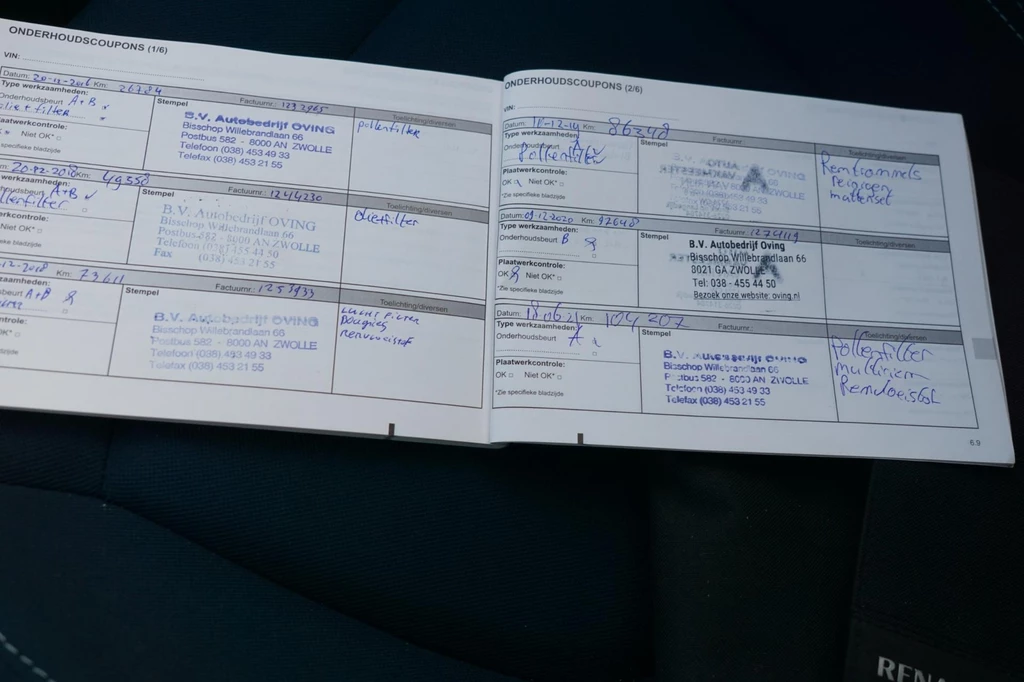 ONDERHOUDSCOUPONS (1/6)
VIN:
Datum: 20-12-2016 Km: 26784 Factuurnr.: 1232965
Type werkzaamheden: Stempel Toelichting/diversen
Onderhoudsbeurt A+B
filter
pollenfilter
B.V. Autobedrijf OVING
Bisschop Willebrandlaan 66
Postbus 582 - 8000 AN ZWOLLE
Telefoon (038) 453 49 33
Telefax (038) 453 21 55
Niet OK*
specifieke bladzijde
20-12- Km: 49550 Factuurnr.: 1244230
werkzaamheden: Stempel Toelichting/diversen
A+B
oliefilter
B.V. Autobedrijf OVING
Bisschop Willebrandlaan 66
Postbus 582 - 8000 AN ZWOLLE
Telefoon (038) 455 44 50
Fax (038) 453 21 55
Niet OK*
bladzijde
12-2018 Km: 73611 Factuurnr.: 1253933
Stempel Toelichting/diversen
A+B
B.V. Autobedrijf OVING
Bisschop Willebrandlaan 66
Postbus 582 - 8000 AN ZWOLLE
Telefoon (038) 453 49 33
Telefax (038) 453 21 55
bladzijde
ONDERHOUDSCOUPONS (2/6)
VIN:
Datum: Km: 86248 Factuurnr.:
Type werkzaamheden: Stempel Toelichting/diversen
Onderhoudsbeurt
Pollenfilter
Remtrommels
reinigen
mattenset
OVING
ZWOLLE
Plaatwerkcontrole:
OK Niet OK*
*Zie specifieke bladzijde
Datum: 09-12-2020 Km: 92648 Factuurnr.: 1274119
Type werkzaamheden: Stempel Toelichting/diversen
Onderhoudsbeurt B
B.V. Autobedrijf Oving
Bisschop Willebrandlaan 66
8021 GA ZWOLLE
Tel: 038 - 455 44 50
Bezoek onze website: oving.nl
Plaatwerkcontrole:
OK Niet OK*
*Zie specifieke bladzijde
Datum: 18 06 21 Km: 104 207 Factuurnr.:
Type werkzaamheden: Stempel Toelichting/diversen
Onderhoudsbeurt A
Pollenfilter
multiriem
Remvloeistof
B.V. Autobedrijf OVING
Bisschop Willebrandlaan 66
Postbus 582 - 8000 AN ZWOLLE
Telefoon (038) 453 49 33
Telefax (038) 453 21 55
Plaatwerkcontrole:
OK Niet OK*
*Zie specifieke bladzijde
6.9
REN